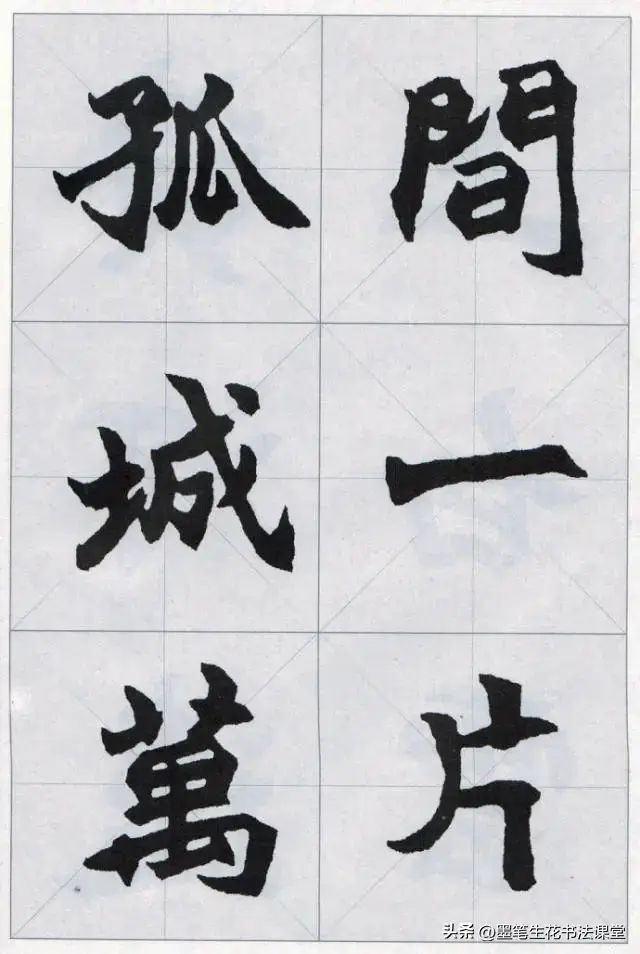 間一片
孤城萬
头条 @墨笔生花书法课堂